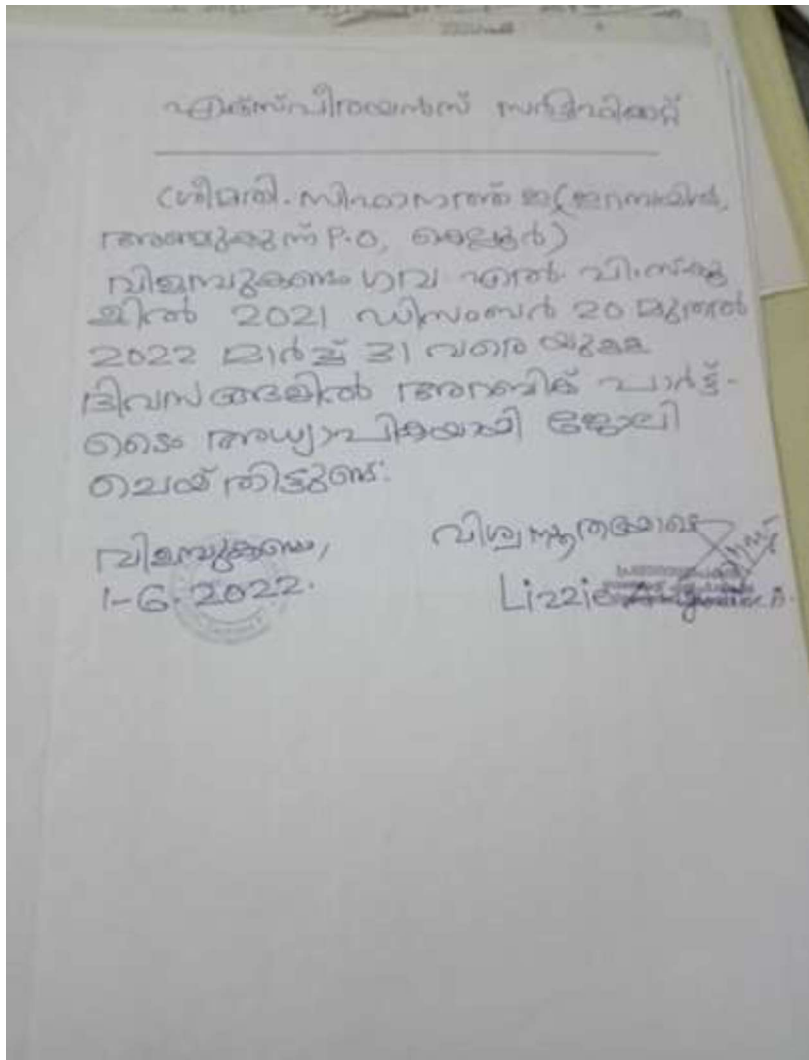 എക്സ്പീരിയൻസ് സർട്ടിഫിക്കറ്റ്
ശ്രീമതി. സിഫാനത്ത് ഇ (
അഞ്ചുകുന്ന് P.O,
വിളമ്പുകണ്ടം ഗവ എൽ. പി.സ്കൂ
ളിൽ 2021 ഡിസംബർ 20 മുതൽ
2022 മാർച്ച് 31 വരെ യുള്ള
ദിവസങ്ങളിൽ അറബിക് പാർട്ട്-
ടൈം അധ്യാപികയായി ജോലി
ചെയ്തിട്ടുണ്ട്.
വിളമ്പുകണ്ടം,
1-6-2022.
വിശ്വസ്തതയോടെ
Lizzie